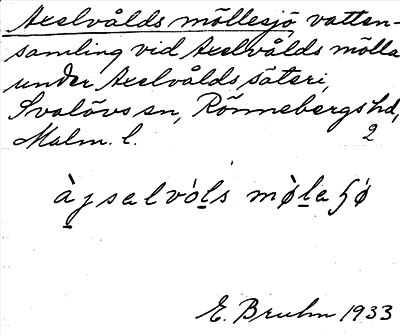 Axelvålds möllesjö vatten-
samling vid Axelvålds mölla
under Axelvålds säteri,
Svalövs sn, Rönnebergs hd,
Malm. l. 2
àjsalvòls mø̀laɧø
E. Bruhn 1933